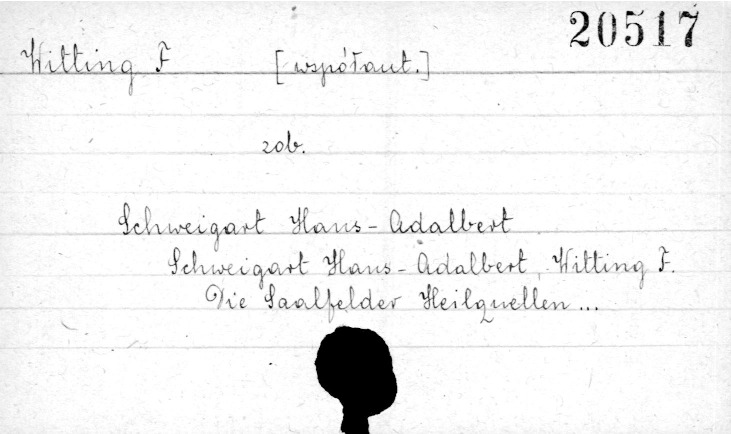 20517
Witting F [współaut.]
zob.
Schweigart Hans-Adalbert
Schweigart Hans-Adalbert, Witting F.
Die Saalfelder Heilquellen...